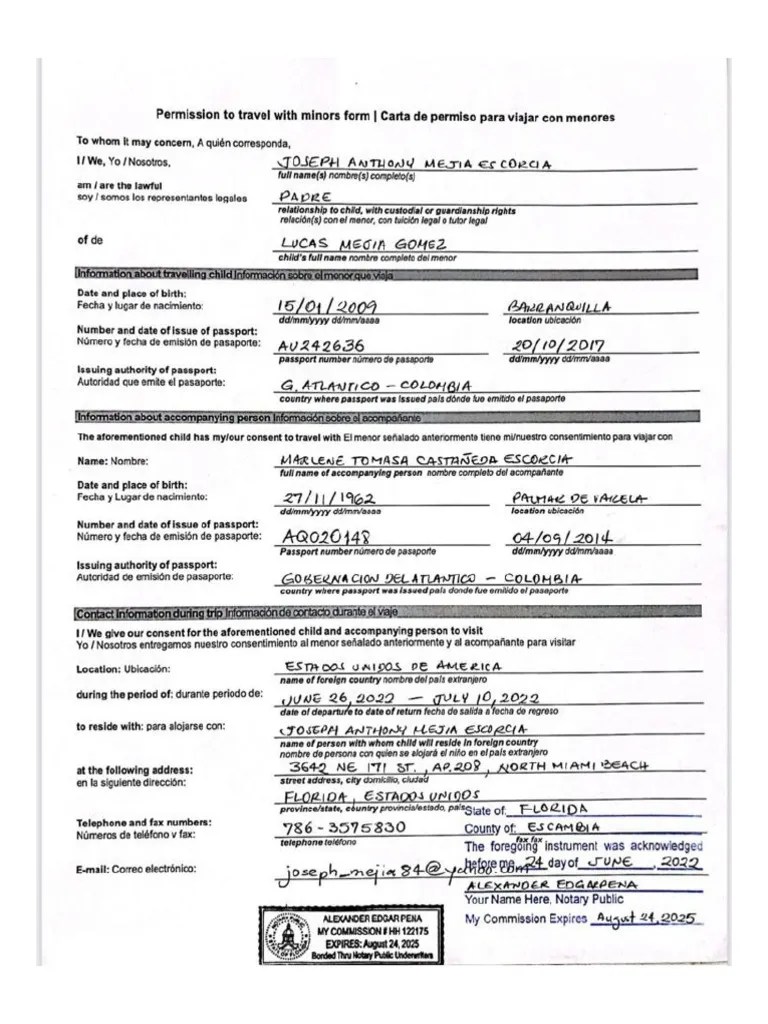 Permission to travel with minors form | Carta de permiso para viajar con menores
To whom it may concern, A quién corresponda,
I / We, Yo / Nosotros, JOSEPH ANTHONY MEJIA ESCORCIA
full name(s) nombre(s) completo(s)
am / are the lawful
soy / somos los representantes legales PADRE
relationship to child, with custodial or guardianship rights
relación(s) con el menor, con tuición legal o tutor legal
of de LUCAS MEJIA GOMEZ
child's full name nombre completo del menor
Information about travelling child Información sobre el menor que viaja
Date and place of birth:
Fecha y lugar de nacimiento: 15/01/2009 BARRANQUILLA
dd/mm/yyyy dd/mm/aaaa location ubicación
Number and date of issue of passport:
Número y fecha de emisión de pasaporte: AU242636 20/10/2017
passport number número de pasaporte dd/mm/yyyy dd/mm/aaaa
Issuing authority of passport:
Autoridad que emite el pasaporte: G. ATLANTICO - COLOMBIA
country where passport was issued país dónde fue emitido el pasaporte
Information about accompanying person Información sobre el acompañante
The aforementioned child has my/our consent to travel with El menor señalado anteriormente tiene mi/nuestro consentimiento para viajar con
Name: Nombre: MARLENE TOMASA CASTAÑEDA ESCORCIA
full name of accompanying person nombre completo del acompañante
Date and place of birth:
Fecha y Lugar de nacimiento: 27/11/1962 PALMAR DE VARELA
dd/mm/yyyy dd/mm/aaaa location ubicación
Number and date of issue of passport:
Número y fecha de emisión de pasaporte: AQ020148 04/09/2014
Passport number número de pasaporte dd/mm/yyyy dd/mm/aaaa
Issuing authority of passport:
Autoridad de emisión de pasaporte: GOBERNACION DEL ATLANTICO - COLOMBIA
country where passport was issued país donde fue emitido el pasaporte
Contact information during trip Información de contacto durante el viaje
I / We give our consent for the aforementioned child and accompanying person to visit
Yo / Nosotros entregamos nuestro consentimiento al menor señalado anteriormente y al acompañante para visitar
Location: Ubicación: ESTADOS UNIDOS DE AMERICA
name of foreign country nombre del país extranjero
during the period of: durante periodo de: JUNE 26, 2022 — JULY 10, 2022
date of departure to date of return fecha de salida a fecha de regreso
to reside with: para alojarse con: JOSEPH ANTHONY MEJIA ESCORCIA
name of person with whom child will reside in foreign country
nombre de persona con quien se alojará el niño en el país extranjero
at the following address: 3642 NE 171 ST., AP. 208, NORTH MIAMI BEACH
en la siguiente dirección: street address, city domicilio, ciudad
FLORIDA, ESTADOS UNIDOS
province/state, country provincia/estado, país State of: FLORIDA
Telephone and fax numbers:
Números de teléfono y fax: 786-3575830 County of: ESCAMBIA
telephone teléfono fax fax
The foregoing instrument was acknowledged
E-mail: Correo electrónico: joseph_mejia84@yahoo.com before me 24 day of JUNE, 2022
ALEXANDER EDGARPENA
Your Name Here, Notary Public
My Commission Expires August 24, 2025
ALEXANDER EDGAR PENA
MY COMMISSION # HH 122175
EXPIRES: August 24, 2025
Bonded Thru Notary Public Underwriters